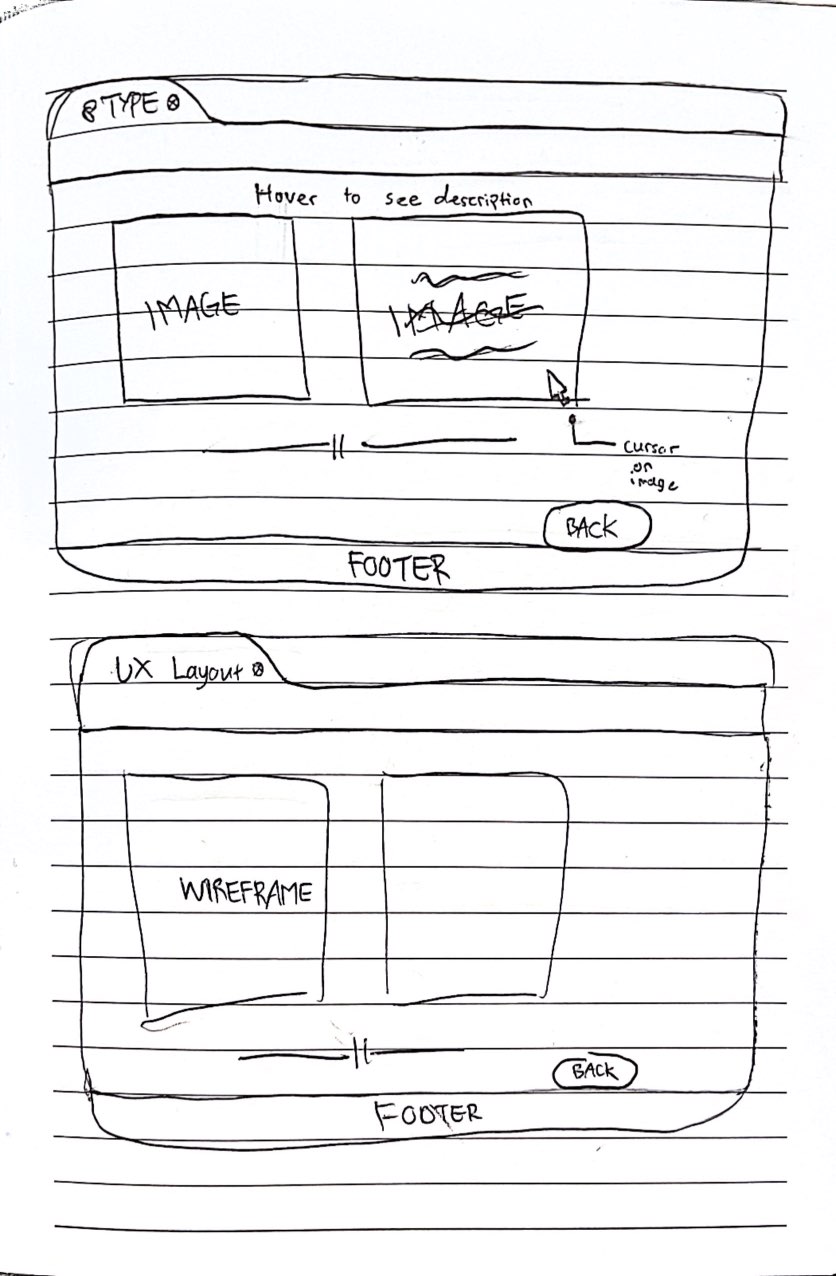 TYPE
Hover to see description
IMAGE
IMAGE
cursor
on
image
BACK
FOOTER
UX Layout
WIREFRAME
BACK
FOOTER